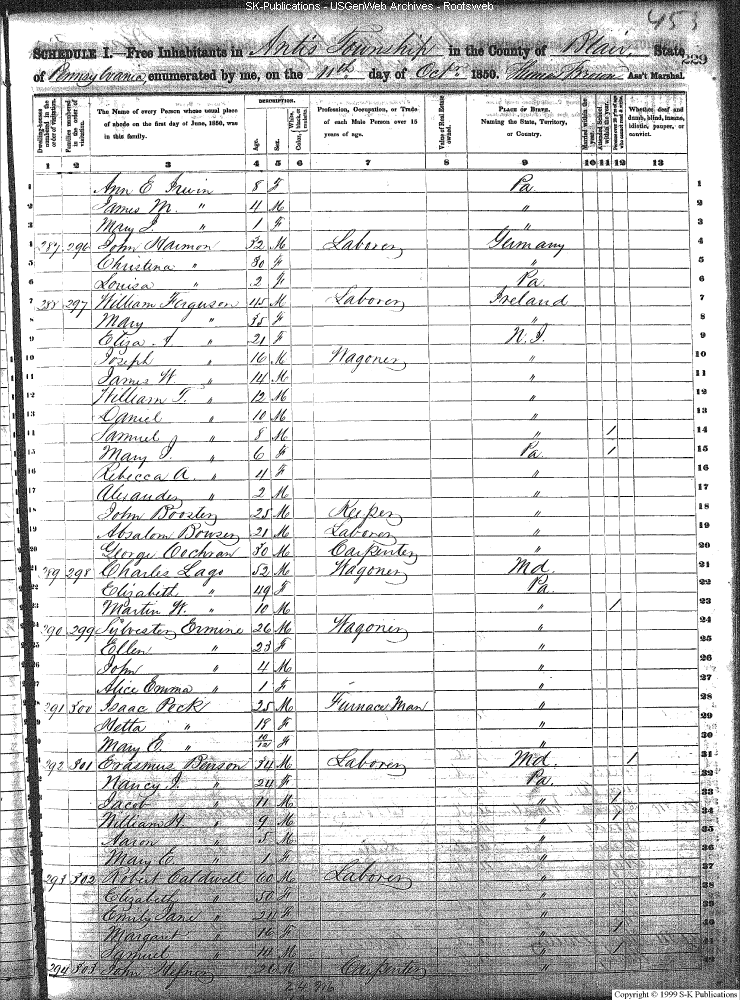 SK-Publications - USGenWeb Archives - Rootsweb
453
229
SCHEDULE I.—Free Inhabitants in Antis Township in the County of Blair, State
of Pennsylvania, enumerated by me, on the 11th day of Octr. 1850. Thomas Brown Ass't Marshal.
Dwelling-houses numbered in the order of visitation. Families numbered in the order of visitation. The Name of every Person whose usual place of abode on the first day of June, 1850, was in this family. DESCRIPTION. Age. Sex. White, black, or mulatto. Color, Profession, Occupation, or Trade of each Male Person over 15 years of age. Value of Real Estate owned. PLACE OF BIRTH. Naming the State, Territory, or Country. Married within the year. Attended School within the year. Whether deaf and dumb, blind, insane, idiotic, pauper, or convict.
1 2 3 4 5 6 7 8 9 10 11 12 13
1 Ann E Irwin 8 F Pa. 1
2 James M. " 4 M " 2
3 Mary J. " 1 F " 3
4 287 296 John Harmon 32 M Laborer Germany 4
5 Christina " 30 F " 5
6 Louisa " 2 F Pa. 6
7 288 297 William Ferguson 45 M Laborer Ireland 7
8 Mary " 35 F " 8
9 Eliza J. " 21 F N.J. 9
10 Joseph " 16 M Wagoner " 10
11 James W. " 14 M " 11
12 William T. " 12 M " 12
13 Daniel " 10 M " 13
14 Samuel " 8 M " / 14
15 Mary J. " 6 F Pa. / 15
16 Rebecca A. " 4 F " 16
17 Alexander " 2 M " 17
18 John Booster 25 M Keeper " 18
19 Absalom Bowser 21 M Laborer " 19
20 George Cochran 30 M Carpenter " 20
21 289 298 Charles Lago 52 M Wagoner Md. 21
22 Elizabeth " 49 F Pa. 22
23 Martin W. " 10 M " / 23
24 290 299 Sylvester Ermine 26 M Wagoner " 24
25 Ellen " 23 F " 25
26 John " 4 M " 26
27 Alice Emma " 1 F " 27
28 291 300 Isaac Peck 25 M Furnace Man " 28
29 Metta " 18 F " 29
30 Mary E. " 10/12 F " 30
31 292 301 Erasmus Benson 34 M Laborer Md. / 31
32 Nancy J. " 24 F Pa. 32
33 Jacob " 11 M " / 33
34 William H. " 9 M " / 34
35 Aaron " 5 M " 35
36 Mary E. " 1 F " 36
37 293 302 Robert Caldwell 60 M Laborer " 37
38 Elizabeth " 50 F " 38
39 Emily Jane " 24 F " 39
40 Margaret " 16 F " / 40
41 Samuel " M " / 41
42 294 303 John M Carpenter " 42
Copyright © 1999 S-K Publications